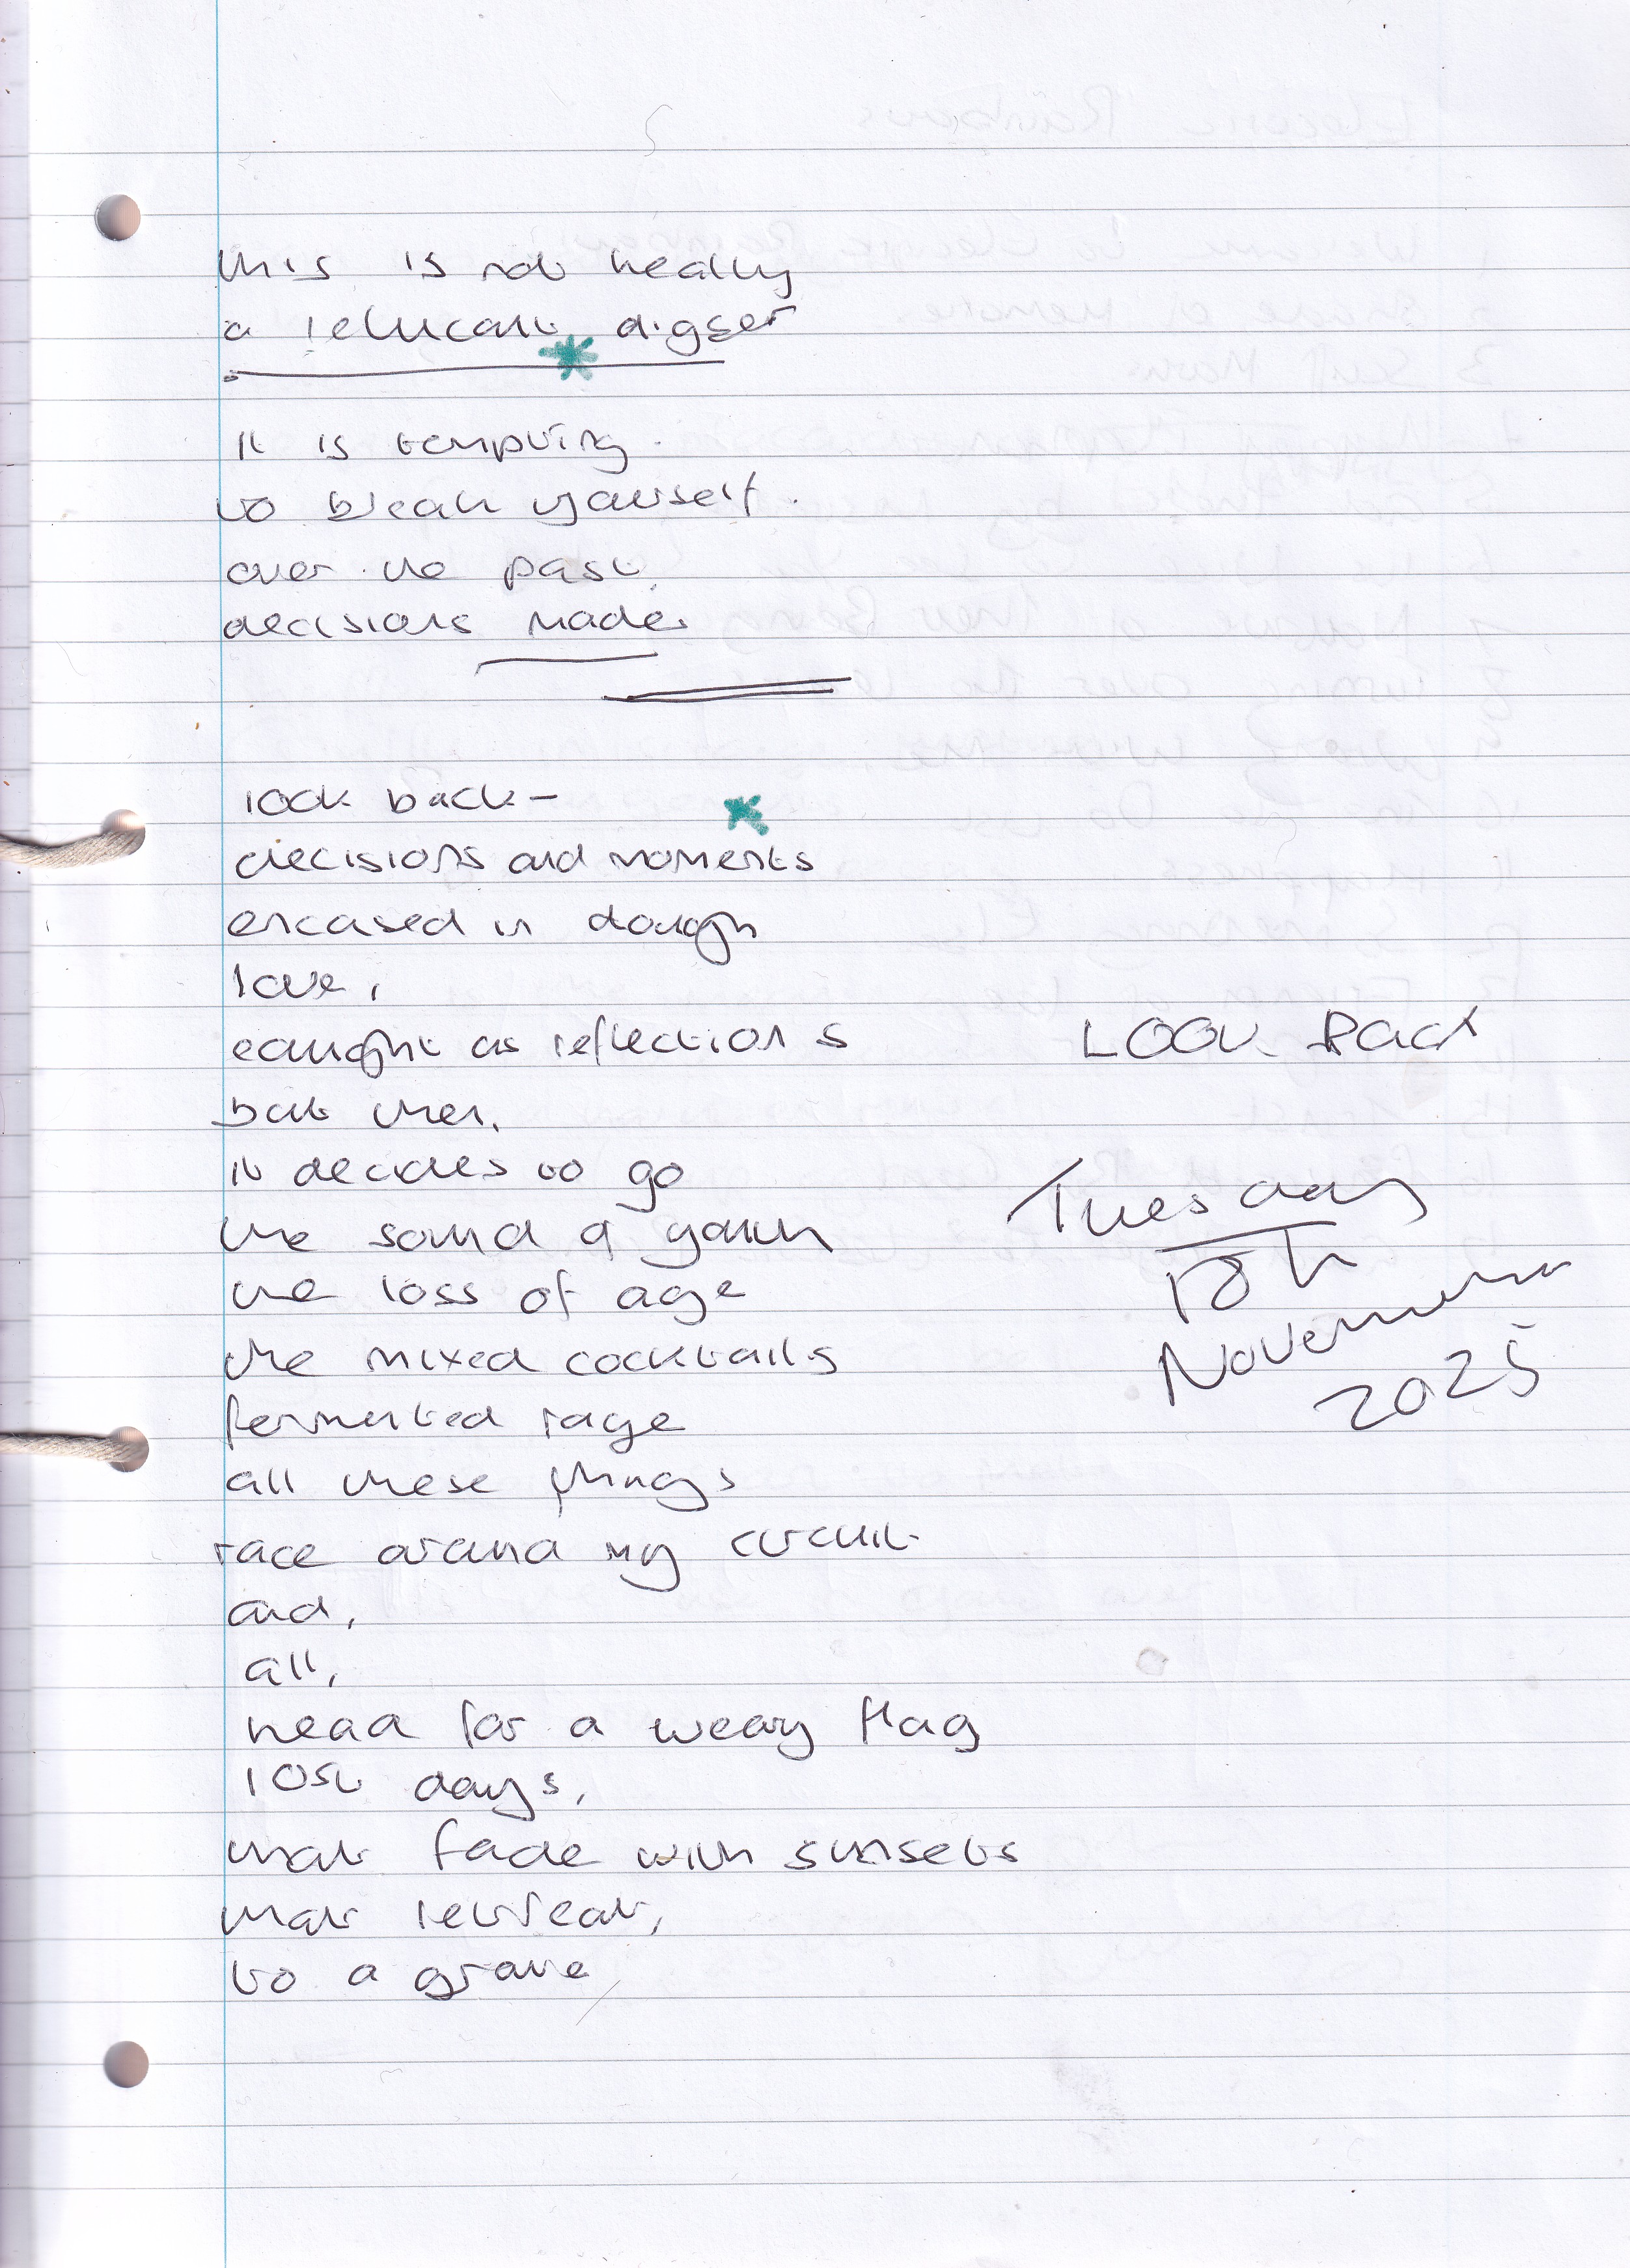 this is not really
a reluctant digger
it is tempting
to break yourself
over the past
decisions made
look back -
decisions and moments
encased in dough
love,
caught as reflections
but then,
it decides to go
the sound a
the loss of age
the mixed cocktails
fermented rage
all these things
race around my circuit
and,
all,
head for a weary flag
lost days,
that fade with sunsets
that retreat,
to a grave
LOOK Back
Tuesday
18th
November
2025